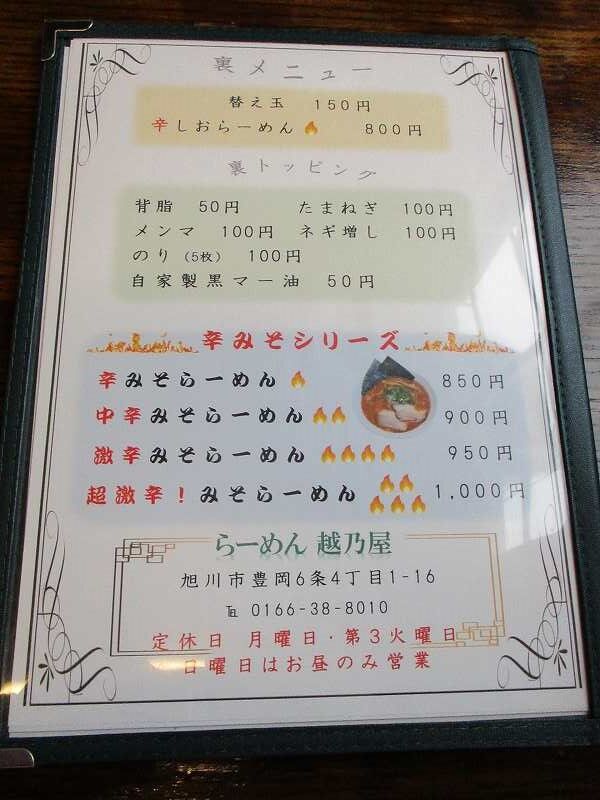 裏メニュー
替え玉 150円
辛しおらーめん 800円
裏トッピング
背脂 50円 たまねぎ 100円
メンマ 100円 ネギ増し 100円
のり(5枚) 100円
自家製黒マー油 50円
辛みそシリーズ
辛みそらーめん 850円
中辛みそらーめん 900円
激辛みそらーめん 950円
超激辛!みそらーめん 1,000円
らーめん 越乃屋
旭川市豊岡6条4丁目1-16
℡ 0166-38-8010
定休日 月曜日・第3火曜日
日曜日はお昼のみ営業